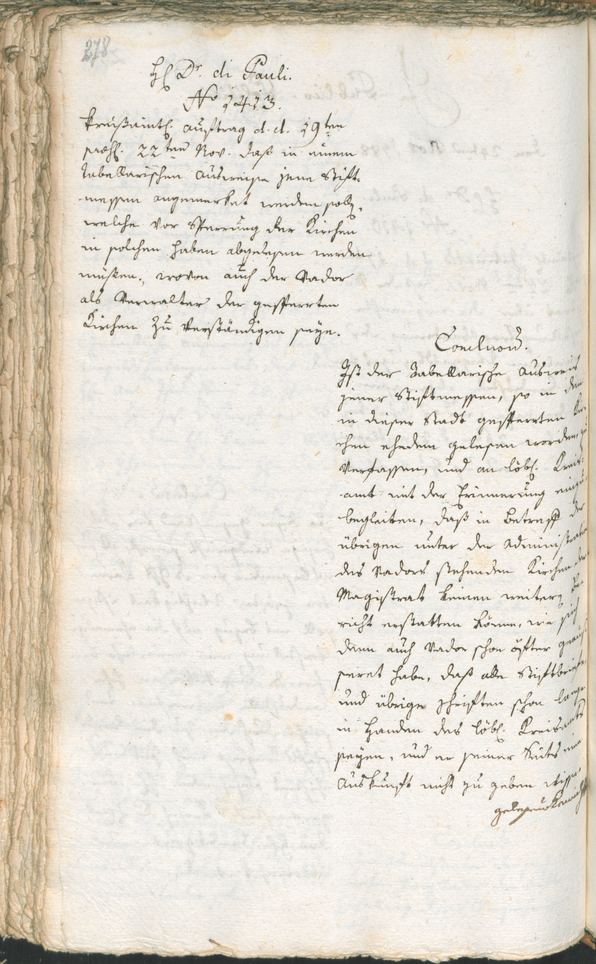 278
H. Dr. di Pauli.
No 1413.
Kreisamtl. Auftrag d. d. 19ten
praes. 22ten Nov. daß in einem
Tabellarischen Ausweise jene Stift-
messen angemerket werden soll,
welche vor Sperrung der Kirchen
in solchen haben abgelesen werden
müssen, wovon auch der Vador
als Verwalter der gesperrten
Kirchen zu verständigen seye.
Conclusum.
Ist der Tabellarische Ausweis
jener Stiftmessen, so in den
in dieser Stadt gesperrten Kir-
chen ehedem gelesen worden, zu
verfassen, und an löbl. Kreis-
amt mit der Erinnerung
begleiten, daß in Betreff der
übrigen unter der Administration
des Vadors stehenden Kirchen der
Magistrat keinen weitern Be-
richt erstatten könne, wie sich
dann auch Vador schon öfter geäus-
seret habe, daß alle Stiftbriefe
und übrige Schriften schon lange
in Handen des löbl. Kreisamts
seyen, und er seiner Seits
Auskunft nicht zu geben wisse.